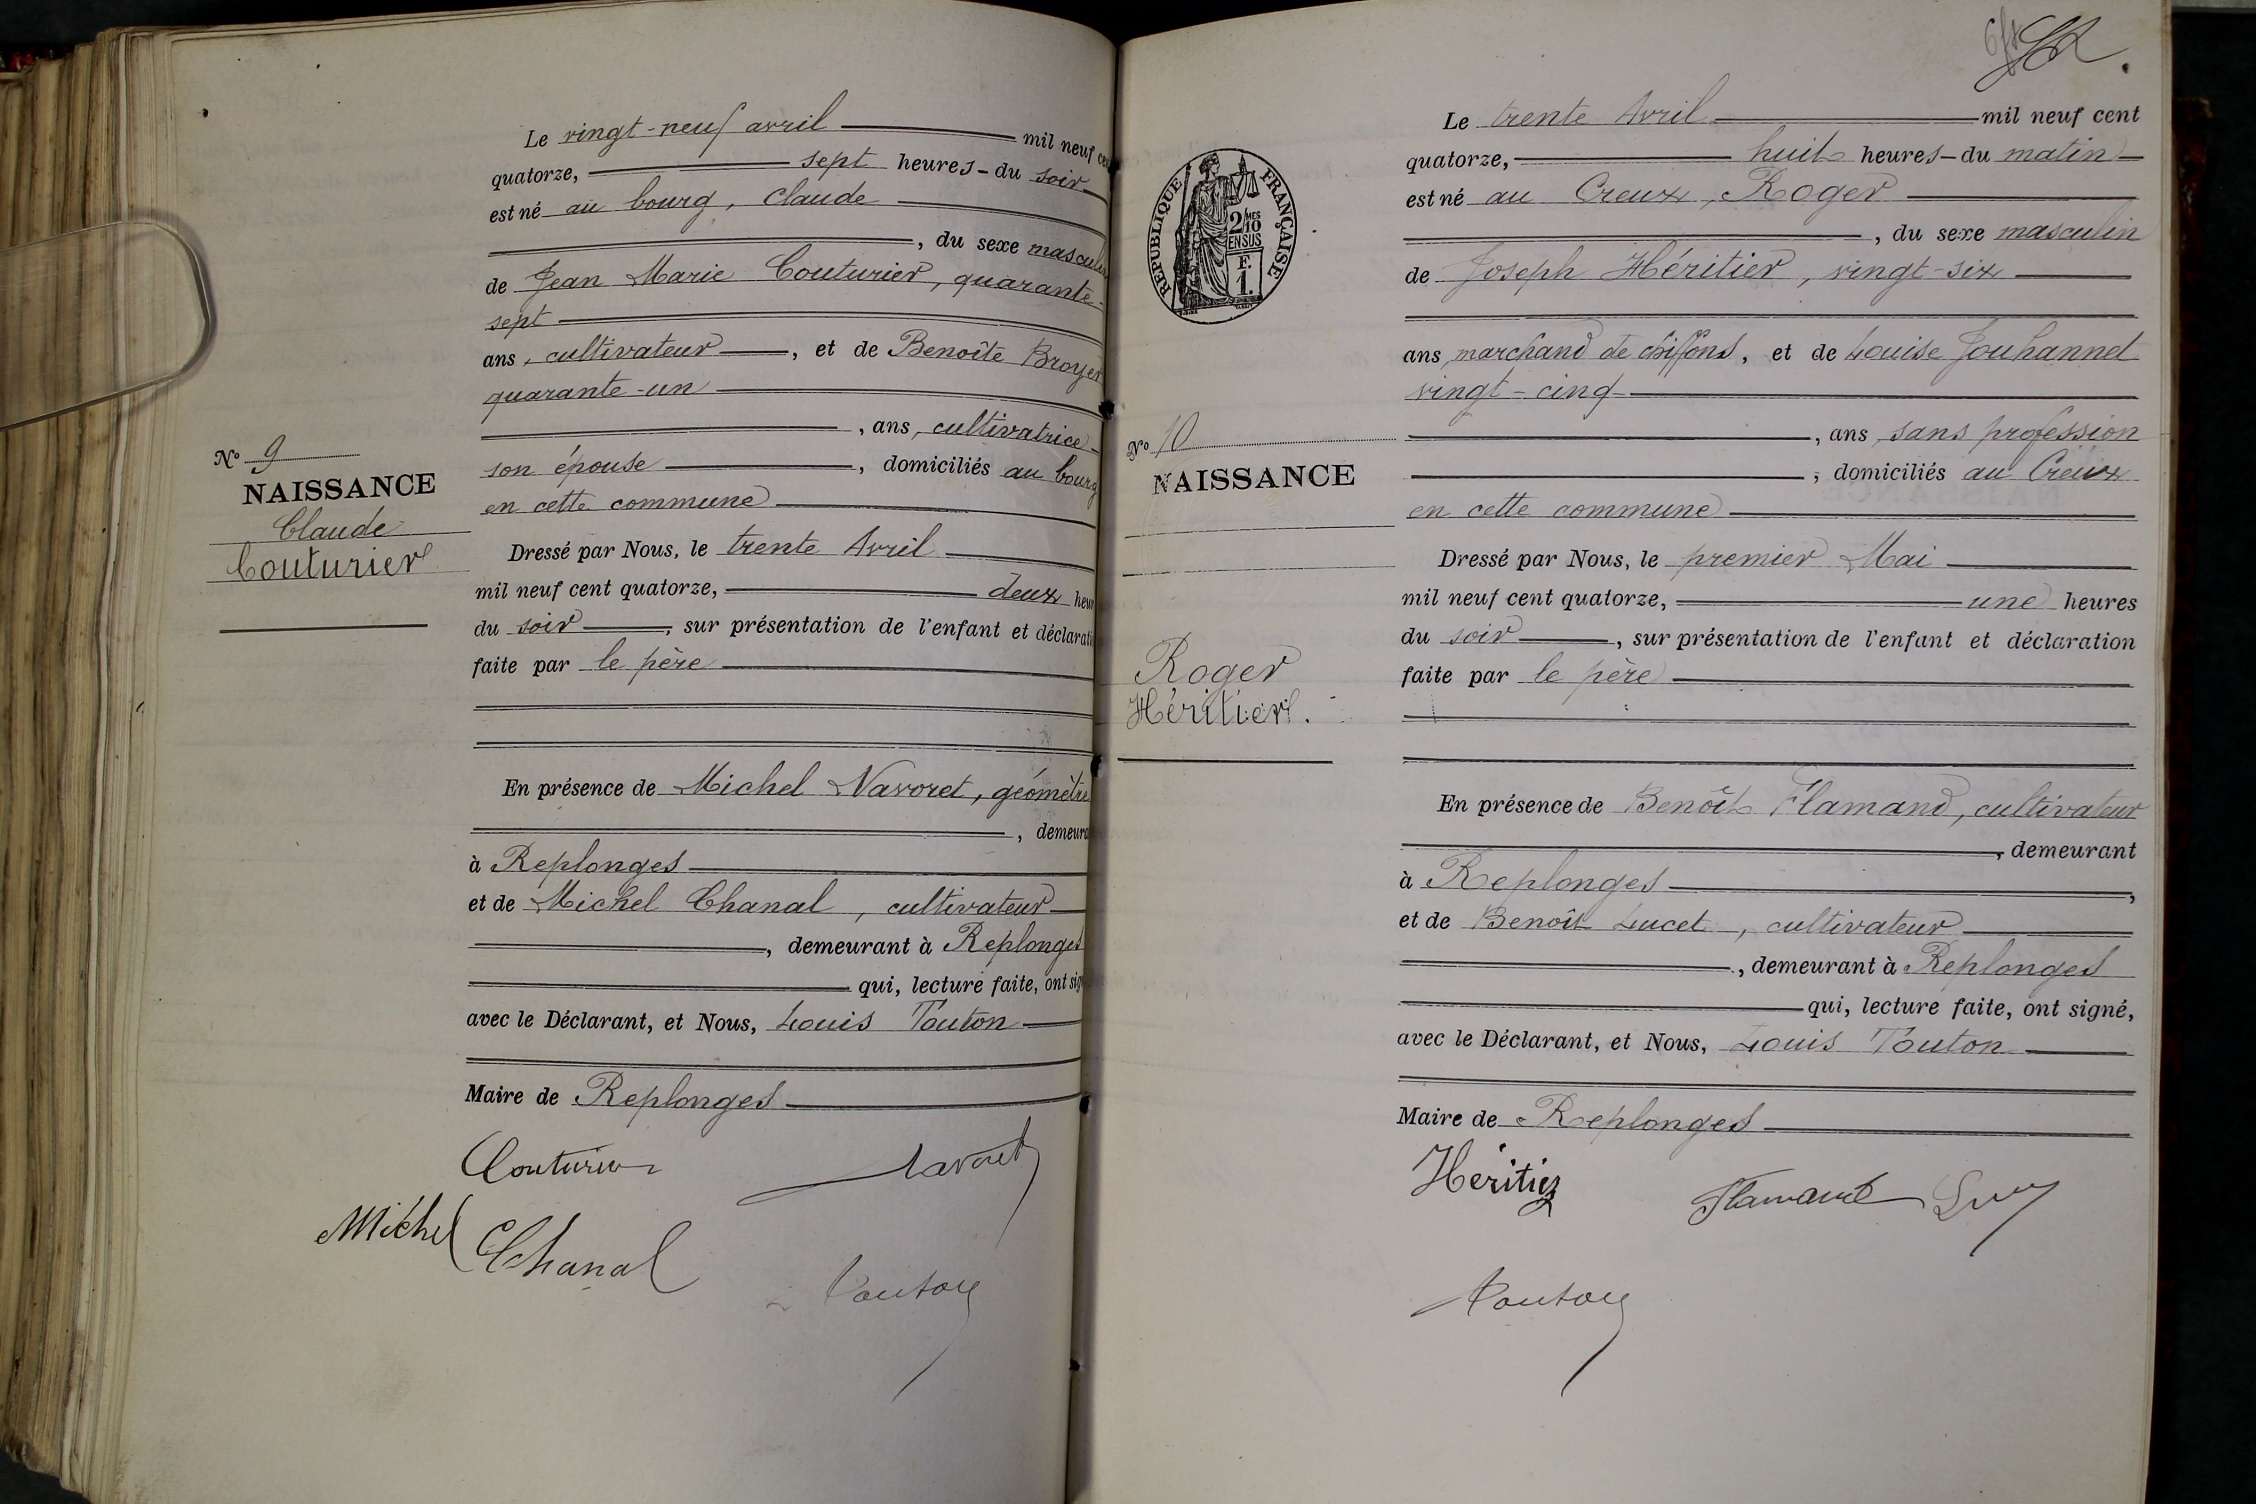 Le vingt-neuf avril mil neuf cen
quatorze, sept heures - du soir
est né au bourg, Claude
, du sexe masculin
de Jean Marie Couturier, quarante-
sept
ans, cultivateur, et de Benoîte Broyer
quarante-un
, ans, cultivatrice
son épouse, domiciliés au bourg
en cette commune
N° 9
NAISSANCE
Claude
Couturier
Dressé par Nous, le trente Avril
mil neuf cent quatorze, deux heur
du soir, sur présentation de l'enfant et déclarati
faite par le père
En présence de Michel Navoret, géomètre
, demeura
à Replonges
et de Michel Chanal, cultivateur
, demeurant à Replonges
qui, lecture faite, ont sig
avec le Déclarant, et Nous, Louis Touton
Maire de Replonges
Couturier Navoret
Michel Chanal
Touton
Le trente Avril mil neuf cent
quatorze, huit heures - du matin
est né au Creux, Roger
, du sexe masculin
de Joseph Héritier, vingt-six
ans, marchand de chiffons, et de Louise Jouhannet
vingt-cinq
, ans, sans profession
, domiciliés au Creux
en cette commune
RÉPUBLIQUE FRANÇAISE
2/10MES
EN SUS
F.
1.
N° 10
NAISSANCE
Roger
Héritier.
Dressé par Nous, le premier Mai
mil neuf cent quatorze, une heures
du soir, sur présentation de l'enfant et déclaration
faite par le père
En présence de Benoît Flamand, cultivateur
, demeurant
à Replonges,
et de Benoît Lucet, cultivateur
, demeurant à Replonges
qui, lecture faite, ont signé,
avec le Déclarant, et Nous, Louis Touton
Maire de Replonges
Héritier Flamand
Touton